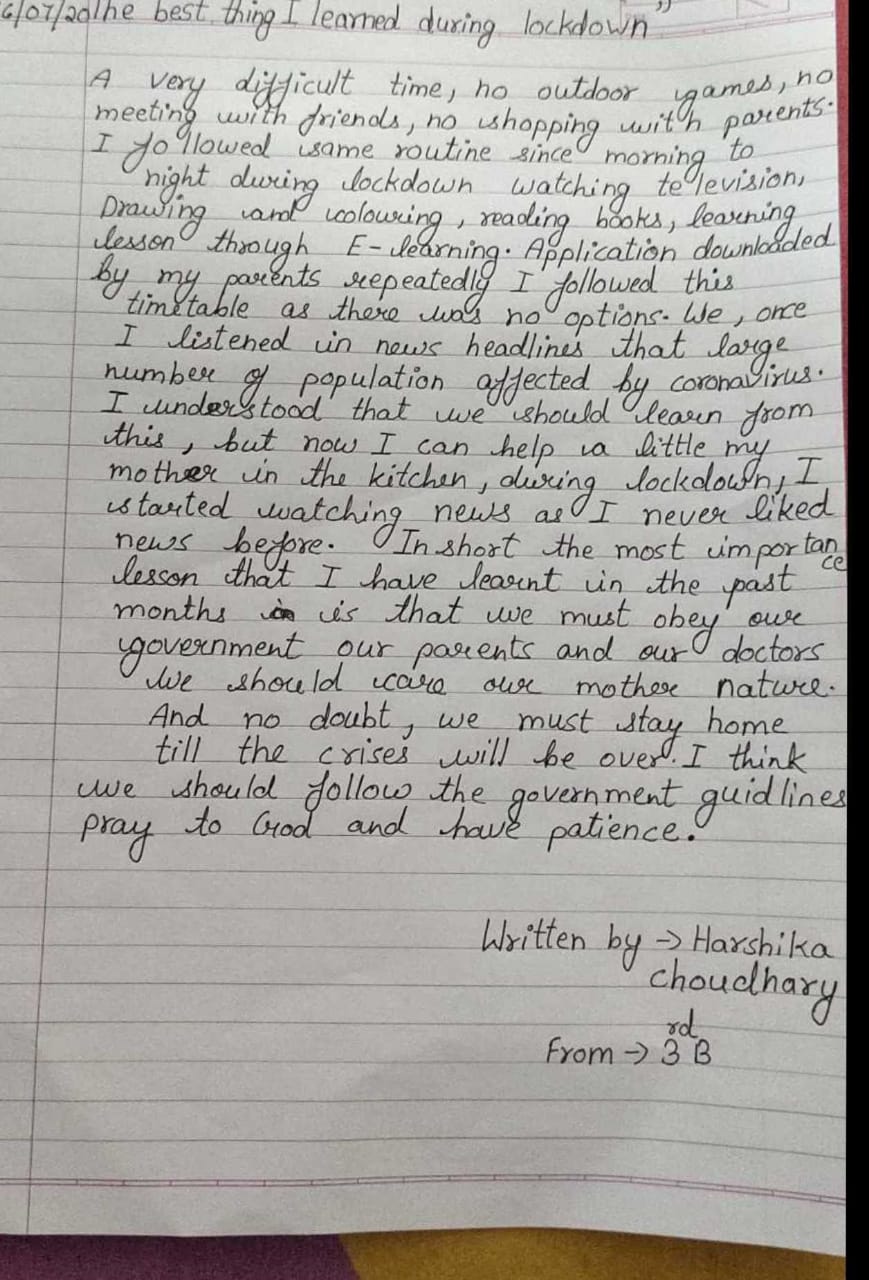 6/07/20 The best thing I learned during lockdown"
A very difficult time, no outdoor games, no
meeting with friends, no shopping with parents.
I followed same routine since morning to
night during lockdown watching television,
Drawing and colouring, reading books, learning
lesson through E-learning. Application downloaded
by my parents repeatedly I followed this
timetable as there was no options. We, once
I listened in news headlines that large
number of population affected by coronavirus.
I understood that we should learn from
this, but now I can help a little my
mother in the kitchen, during lockdown, I
started watching news as I never liked
news before. In short the most importance
lesson that I have learnt in the past
months is that we must obey our
government our parents and our doctors
We should care our mother nature.
And no doubt, we must stay home
till the crises will be over. I think
we should follow the government guidlines
pray to God and have patience.
Written by → Harshika
choudhary
From → 3rd B